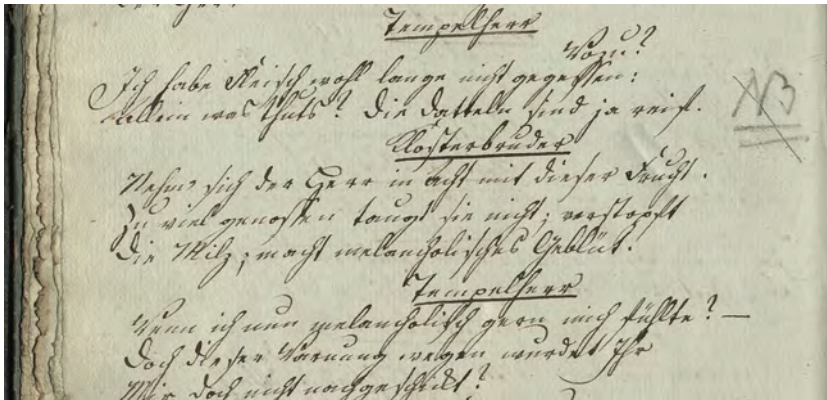 Tempelherr
Wozu?
Ich habe Fleisch wohl lange nicht gegessen:
Allein was thuts? Die Datteln sind ja reif.
NB
Klosterbruder
Nehm' sich der Herr in Acht mit dieser Frucht.
Zu viel genossen taugt sie nicht; verstopft
Die Milz; macht melancholisches Geblüt.
Tempelherr
Wenn ich nun melancholisch gern mich fühlte? —
Doch dieser Warnung wegen wurdet Ihr
Mir doch nicht nachgeschickt?